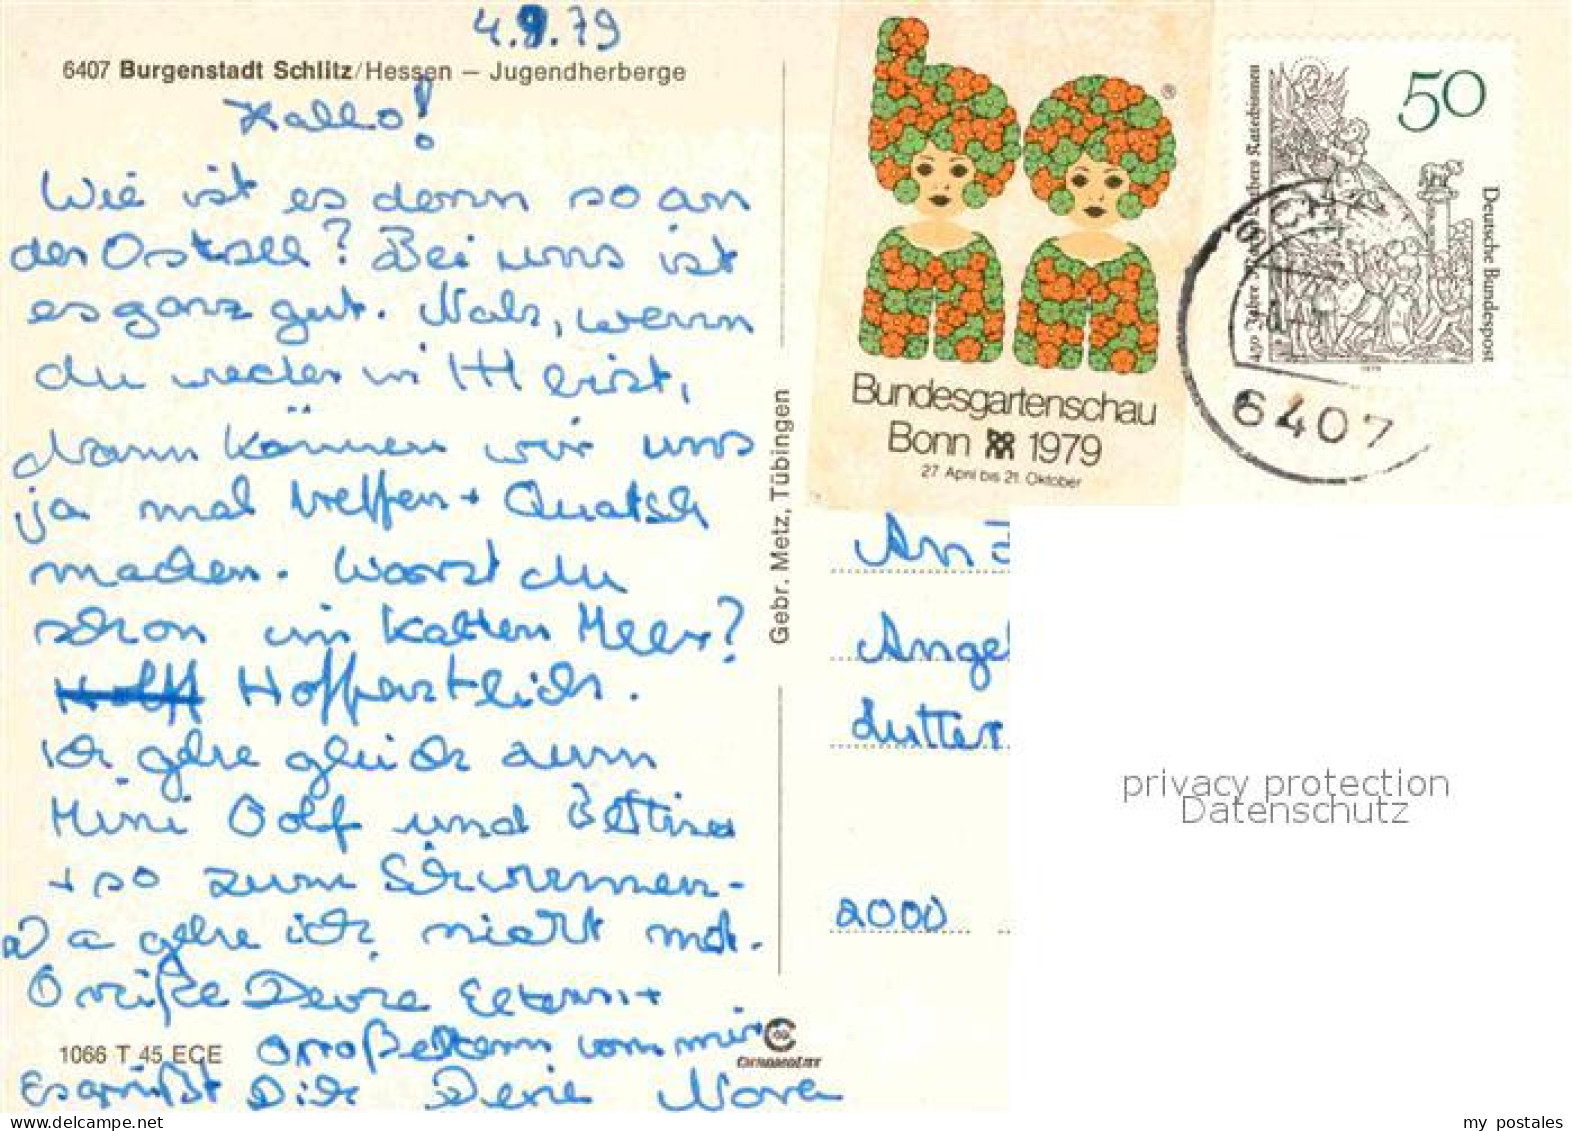 4.9.79
6407 Burgenstadt Schlitz/Hessen – Jugendherberge
Hallo!
Wie ist es denn so an
der Ostsee? Bei uns ist
es ganz gut. Nah, wenn
du wieder in HH bist,
dann können wir uns
ja mal treffen + Quatsch
machen. Warst du
schon im kalten Meer?
Hoffentlich.
Ich gehe gleich zum
Mini Golf und Bettina
+ so zum Schwimmen-
Da gehe ich nicht mit.
Grüße Deine Eltern +
Großeltern von mir
Es grüßt Dich Deine Nora
1066 T 45 ECE
Gebr. Metz, Tübingen
Bundesgartenschau
Bonn 1979
27. April bis 21. Oktober
®
50
Deutsche Bundespost
450 Jahre Martin Luthers Katechismen
1979
6407
An
Ange
Lutter
2000
privacy protection
Datenschutz
my postales
www.delcampe.net